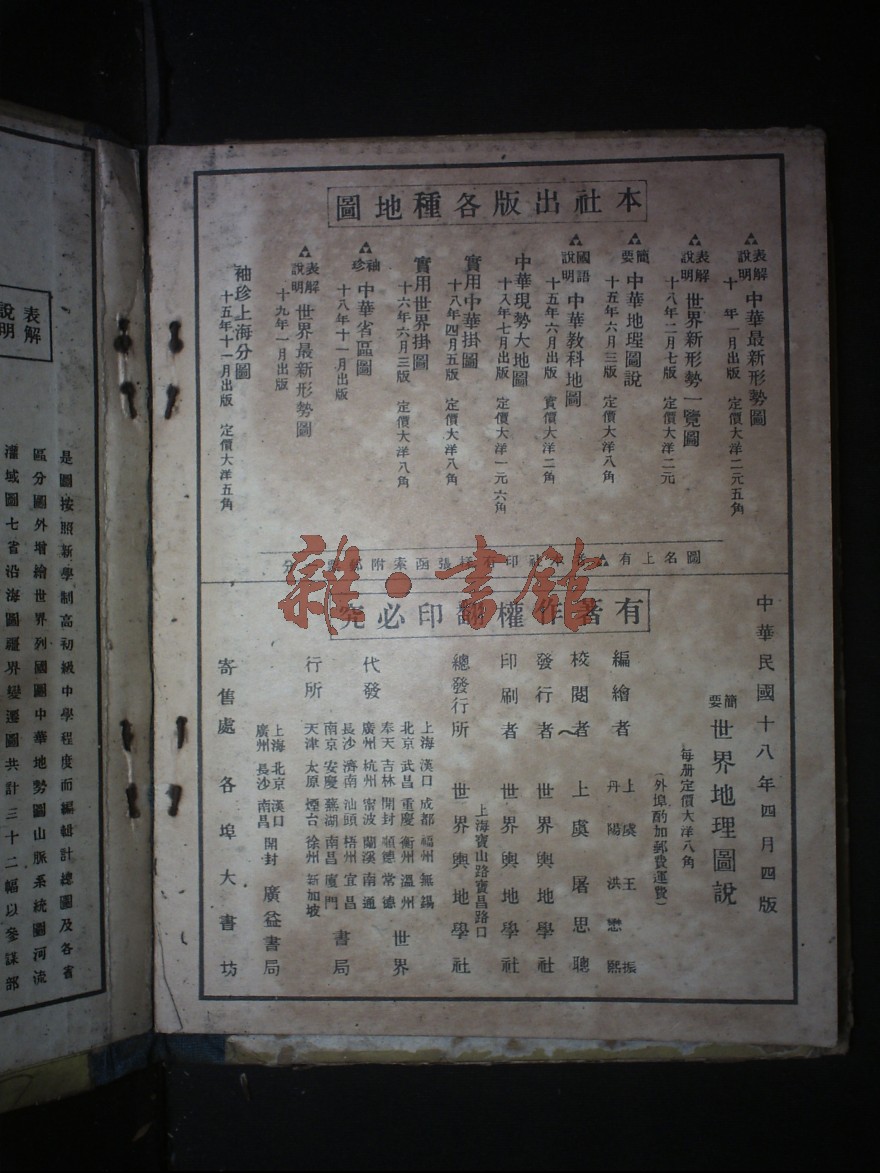 本社出版各種地圖
▲表解說明 中華最新形勢圖
十　年一月出版　定價大洋二元五角
▲表解說明 世界新形勢一覽圖
十八年二月七版　定價大洋二元
▲簡要 中華地理圖說
十五年六月三版　定價大洋八角
▲國語說明 中華教科地圖
十五年六月出版　實價大洋二角
中華現勢大地圖
十八年七月出版　定價大洋一元六角
實用中華掛圖
十八年四月五版　定價大洋八角
實用世界掛圖
十六年六月三版　定價大洋八角
▲袖珍 中華省區圖
十八年十一月出版
▲表解說明 世界最新形勢圖
十九年一月出版
袖珍上海分圖
十五年十一月出版　定價大洋五角
圖名上有▲
社印有樣張函索附
分
雜·書館
有著作權翻印必究
中華民國十八年四月四版
簡要 世界地理圖說
每册定價大洋八角
(外埠酌加郵費運費)
編繪者　上虞王　振
丹陽洪懋熙
校閱者　上虞屠思聰
發行者　世界輿地學社
印刷者　世界輿地學社
總發行所　上海寶山路寶昌路口
世界輿地學社
代發行所
上海 漢口 成都 福州 無錫
北京 武昌 重慶 衢州 溫州
奉天 吉林 開封 順德 常德
廣州 杭州 甯波 蘭溪 南通
長沙 濟南 汕頭 梧州 宜昌
南京 安慶 蕪湖 南昌 廈門
天津 太原 煙台 徐州 新加坡
世界書局
上海 北京 漢口
廣州 長沙 南昌 開封
廣益書局
寄售處　各埠大書坊
表解說明
是圖按照新學制高初級中學程度而編輯計總圖及各省
區分圖外增繪世界列國圖中華地勢圖山脈系統圖河流
灌域圖七省沿海圖疆界變遷圖共計三十二幅以參謀部